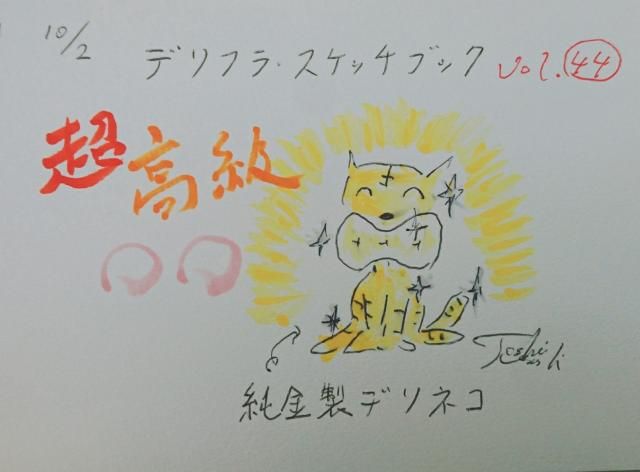 10/2
デリフラ・スケッチブック vol.44
超高級
○○
純金製デリネコ
Toshiaki